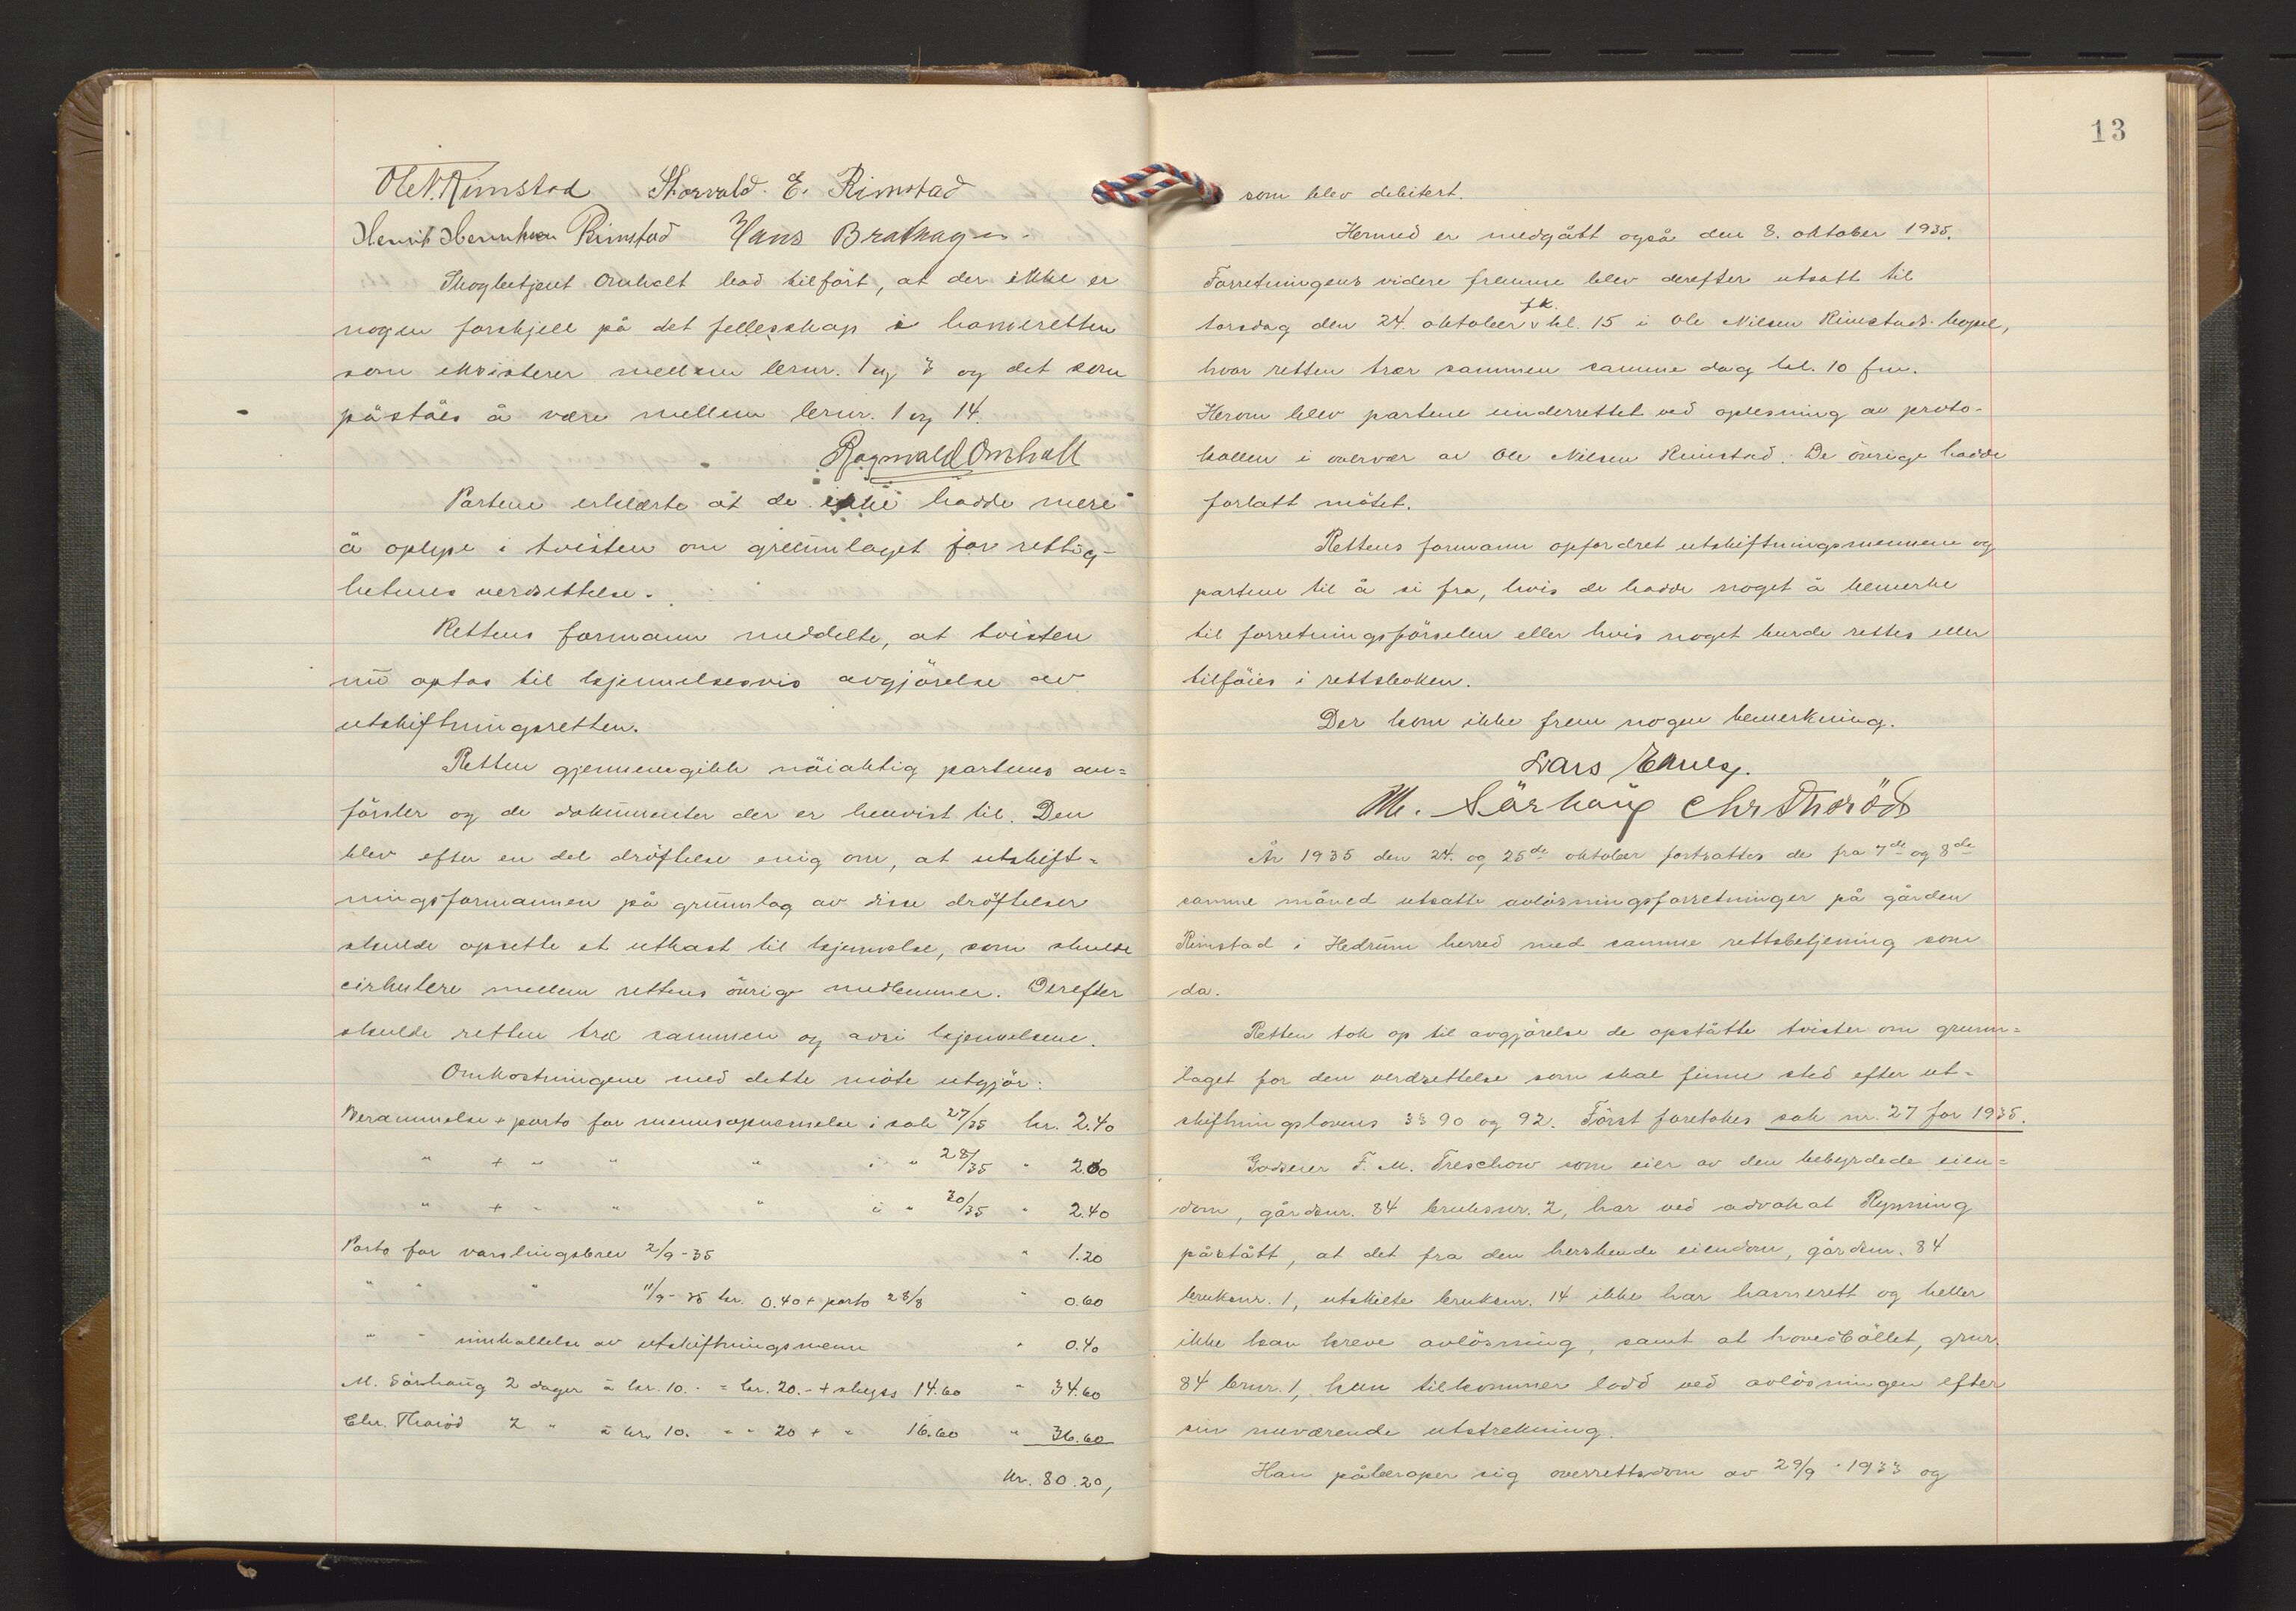 Ole N. Rimstad Thorvald. E. Rimstad
Henrik Rimstad Hans Brathagen
Skogbetjent Omholt bad tilført, at der ikke er
nogen forskjell på det fellesskap i havneretten
som eksisterer mellem brnr. 1 og 3 og det som
påståes å være mellem brnr. 1 og 14.
Ragnvald Omholt
Partene erklærte at de ikke hadde mere
å oplyse i tvisten om grunnlaget for rettig-
hetenes verdsettelse.
Rettens formann meddelte, at tvisten
nu optas til kjennelsesvis avgjörelse av
utskiftningsretten.
Retten gjennemgikk nöiaktig partenes an=
försler og de dokumenter der er henvist til. Den
blev efter en del dröftelse enig om, at utskift=
ningsformannen på grunnlag av disse dröftelser
skulde opsette et utkast til kjennelse, som skulde
cirkulere mellem rettens övrige medlemmer. Derefter
skulde retten træ sammen og avsi kjennelsene.
Omkostningene med dette möte utgjör:
Berammelse + porto for mennsopnevnelse i sak 27/35 kr. 2.40
" + " " " i " 28/35 " 2.00
" + " " " i " 30/35 " 2.40
Porto for varslingsbrev 2/9-35 " 1.20
" " " 11/9-35 kr. 0.40 + porto 28/8 " 0.60
" " innkallelse av utskiftningsmenn " 0.40
M. Sörhaug 2 dager à kr. 10.- = kr. 20.- + skyss 14.60 " 34.60
Chr. Thoröd 2 " à kr. 10. " " 20 + " 16.60 " 36.60
Kr. 80.20,
13
som blev debitert.
Hermed er medgått også den 8. oktober 1935.
Forretningens videre fremme blev derefter utsatt til
fk.
torsdag den 24. oktober v kl. 15 i Ole Nilsen Rimstads bopel,
hvor retten trær sammen samme dag kl. 10 fm.
Herom blev partene underrettet ved oplesning av proto-
kollen i overvær av Ole Nilsen Rimstad. De övrige hadde
forlatt mötet.
Rettens formann opfordret utskiftningsmennene og
partene til å si fra, hvis de hadde noget å bemerke
til forretningsförselen eller hvis noget burde rettes eller
tilföies i rettsboken.
Der kom ikke frem nogen bemerkning.
Lars
M. Sörhaug Chr Thoröd
År 1935 den 24. og 25de oktober fortsattes de fra 7de og 8de
samme måned utsatte avlösningsforretninger på gården
Rimstad i Hedrum herred med samme rettsbetjening som
da.
Retten tok op til avgjörelse de opståtte tvister om grunn=
laget for den verdsettelse som skal finne sted efter ut=
skiftningslovens §§ 90 og 92. Först foretokes sak nr. 27 for 1935.
Godseier F. M. Treschow som eier av den bebyrdede eien=
dom, gårdsnr. 84 bruksnr. 2, har ved advokat Rynning
påstått, at det fra den herskende eiendom, gårdsnr. 84
bruksnr. 1, utskilte bruksnr. 14 ikke har havnerett og heller
ikke kan kreve avlösning, samt at hovedbölet, gnr.
84 brnr. 1, kun tilkommer lodd ved avlösningen efter
sin nuværende utstrekning.
Han påberoper sig overrettsdom av 29/9 - 1933 og